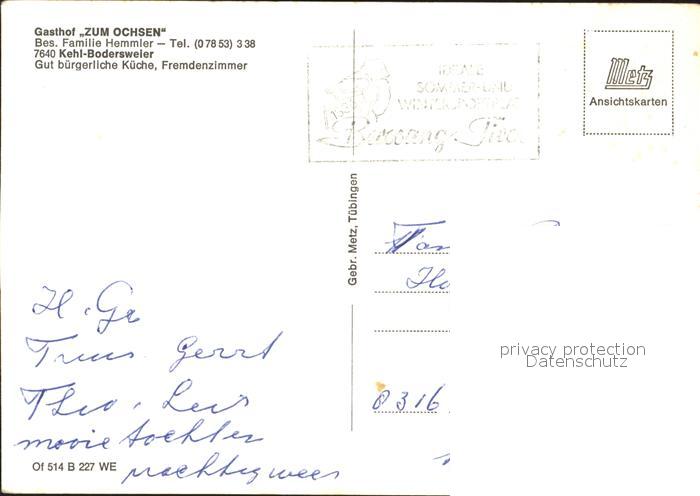 Gasthof „ZUM OCHSEN“
Bes. Familie Hemmler – Tel. (0 78 53) 3 38
7640 Kehl-Bodersweier
Gut bürgerliche Küche, Fremdenzimmer
IDEALE
SOMMER- UND
Metz
Ansichtskarten
Gebr. Metz, Tübingen
H. Gr
Truus Gerrt
Theo, Leis
mooie tochten
prachtig weer
8316
privacy protection
Datenschutz
Of 514 B 227 WE